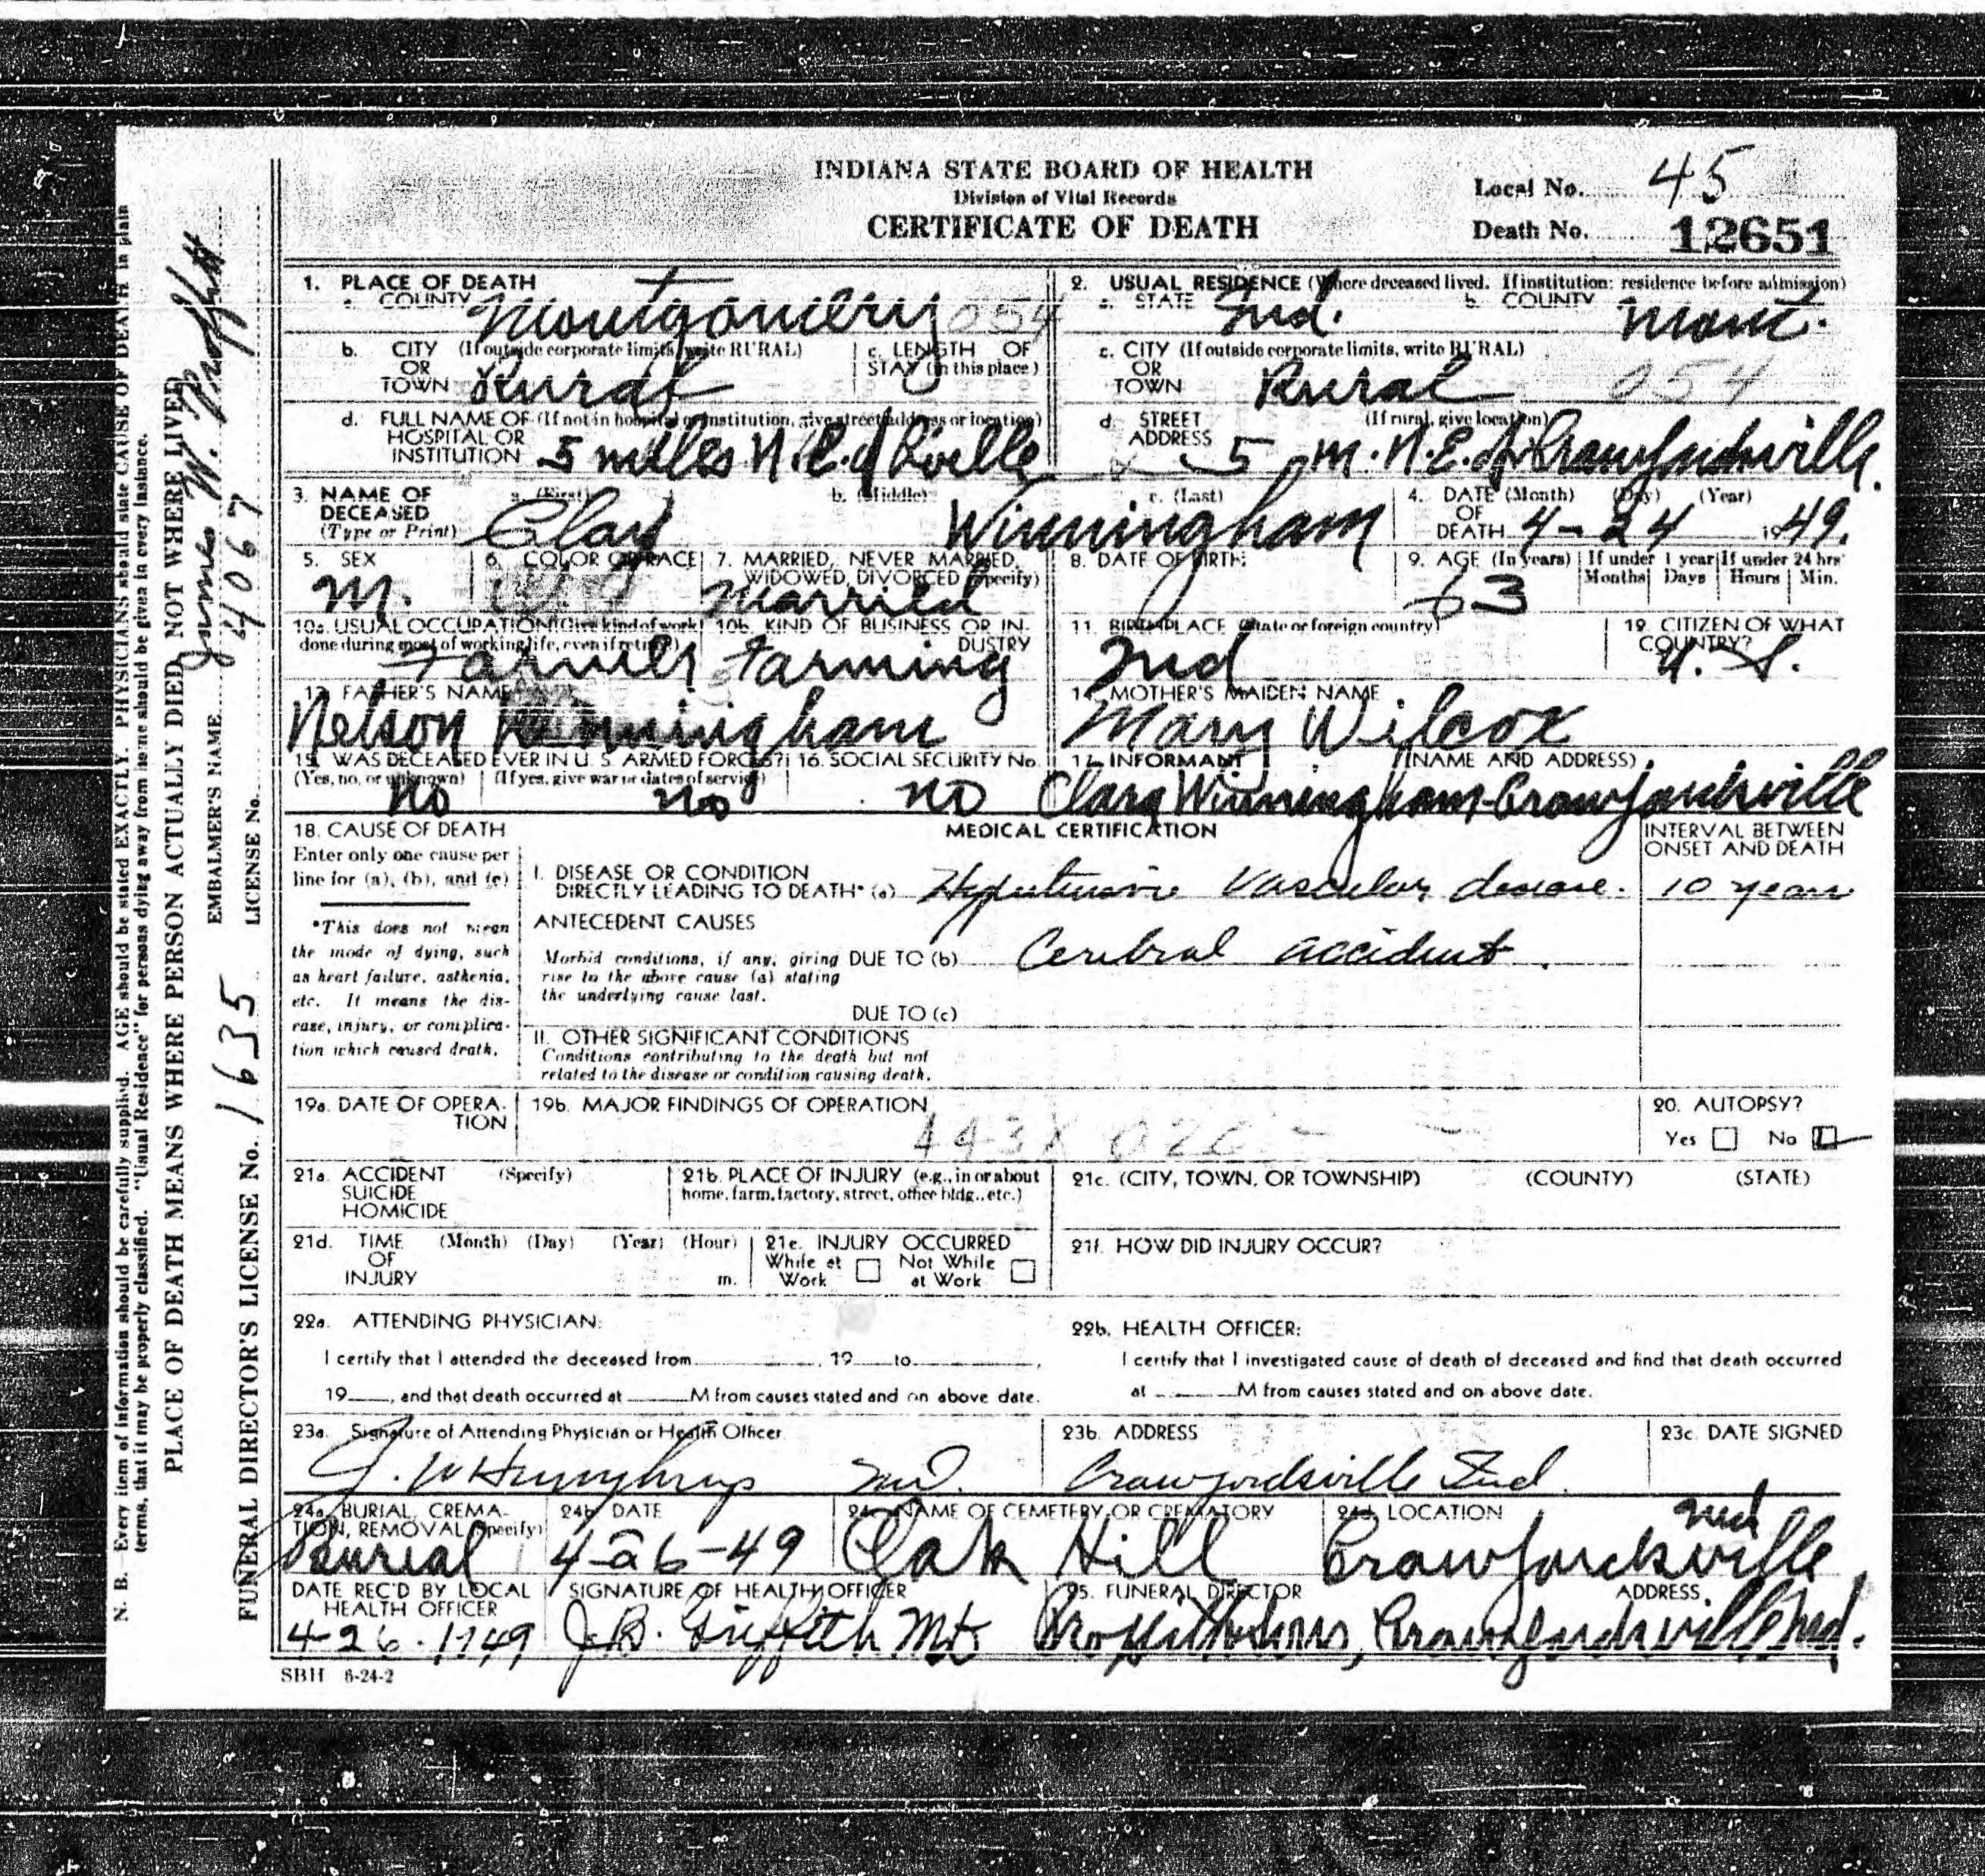 INDIANA STATE BOARD OF HEALTH
Division of Vital Records
CERTIFICATE OF DEATH
Local No. 45
Death No. 12651
1. PLACE OF DEATH
a. COUNTY Montgomery 054
b. CITY (If outside corporate limits, write RURAL) OR TOWN Rural
c. LENGTH OF STAY (in this place)
d. FULL NAME OF (If not in hospital or institution, give street address or location) HOSPITAL OR INSTITUTION 5 miles N.E. of C'ville
2. USUAL RESIDENCE (Where deceased lived. If institution: residence before admission)
a. STATE Ind. b. COUNTY Mont.
c. CITY (If outside corporate limits, write RURAL) OR TOWN Rural 054
d. STREET ADDRESS (If rural, give location) 5 m. N.E. of Crawfordsville.
3. NAME OF DECEASED (Type or Print) a. (First) Clay b. (Middle) c. (Last) Winningham
4. DATE OF DEATH (Month) (Day) (Year) 4-24 1949.
5. SEX M.
6. COLOR OR RACE
7. MARRIED, NEVER MARRIED, WIDOWED, DIVORCED (Specify) Married
8. DATE OF BIRTH:
9. AGE (In years) 63 If under 1 year Months Days If under 24 hrs Hours Min.
10a. USUAL OCCUPATION (Give kind of work done during most of working life, even if retired) Farmer
10b. KIND OF BUSINESS OR INDUSTRY Farming
11. BIRTHPLACE (State or foreign country) Ind
12. CITIZEN OF WHAT COUNTRY? U.S.
13. FATHER'S NAME Nelson Winningham
14. MOTHER'S MAIDEN NAME Mary Wilcox
15. WAS DECEASED EVER IN U. S. ARMED FORCES? (Yes, no, or unknown) no (If yes, give war or dates of service) no
16. SOCIAL SECURITY No. no
17. INFORMANT (NAME AND ADDRESS) Clara Winningham-Crawfordsville
18. CAUSE OF DEATH
Enter only one cause per line for (a), (b), and (c)
*This does not mean the mode of dying, such as heart failure, asthenia, etc. It means the disease, injury, or complication which caused death.
MEDICAL CERTIFICATION
INTERVAL BETWEEN ONSET AND DEATH
I. DISEASE OR CONDITION DIRECTLY LEADING TO DEATH* (a) Hypertensive Vascular disease. 10 years
ANTECEDENT CAUSES
Morbid conditions, if any, giving rise to the above cause (a) stating the underlying cause last.
DUE TO (b) Cerebral accident.
DUE TO (c)
II. OTHER SIGNIFICANT CONDITIONS
Conditions contributing to the death but not related to the disease or condition causing death.
19a. DATE OF OPERATION
19b. MAJOR FINDINGS OF OPERATION
443X
20. AUTOPSY? Yes No
21a. ACCIDENT SUICIDE HOMICIDE (Specify)
21b. PLACE OF INJURY (e.g., in or about home, farm, factory, street, office bldg., etc.)
21c. (CITY, TOWN, OR TOWNSHIP) (COUNTY) (STATE)
21d. TIME OF INJURY (Month) (Day) (Year) (Hour) m.
21e. INJURY OCCURRED While at Work Not While at Work
21f. HOW DID INJURY OCCUR?
22a. ATTENDING PHYSICIAN:
I certify that I attended the deceased from , 19 to ,
19 , and that death occurred at M from causes stated and on above date.
22b. HEALTH OFFICER:
I certify that I investigated cause of death of deceased and find that death occurred
at M from causes stated and on above date.
23a. Signature of Attending Physician or Health Officer J. W Humphreys M.D.
23b. ADDRESS Crawfordsville Ind.
23c. DATE SIGNED
24a. BURIAL, CREMATION, REMOVAL (Specify) Burial
24b. DATE 4-26-49
24c. NAME OF CEMETERY OR CREMATORY Oak Hill
24d. LOCATION Crawfordsville Ind
DATE REC'D BY LOCAL HEALTH OFFICER 4-26-1949
SIGNATURE OF HEALTH OFFICER J.B. Griffith MD
25. FUNERAL DIRECTOR ADDRESS Crawfordsville Ind.
SBH 6-24-2
N. B.—Every item of information should be carefully supplied. AGE should be stated EXACTLY. PHYSICIANS should state CAUSE OF DEATH in plain
terms, that it may be properly classified. "Usual Residence" for persons dying away from home should be given in every instance.
PLACE OF DEATH MEANS WHERE PERSON ACTUALLY DIED, NOT WHERE LIVED
EMBALMER'S NAME James W. Proffitt
FUNERAL DIRECTOR'S LICENSE No. 1635 LICENSE No. 4067